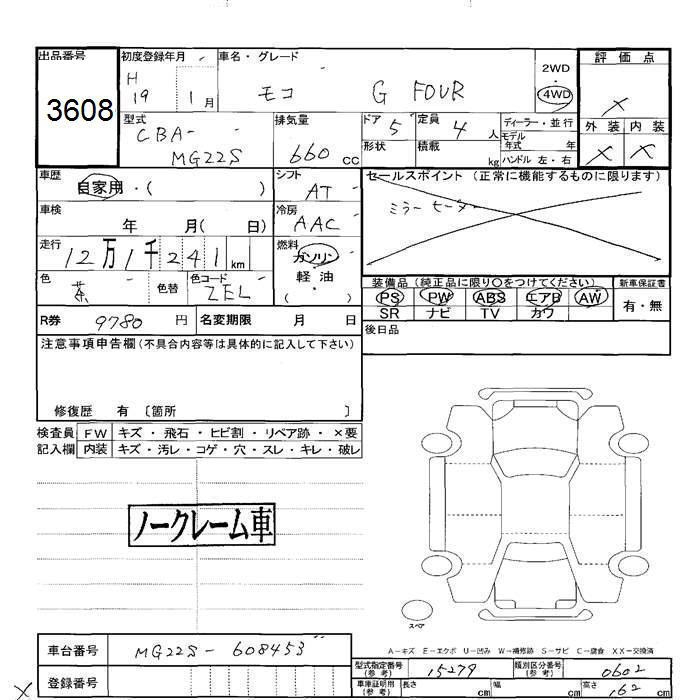 出品番号 初度登録年月 車名・グレード 2WD 評価点
3608 H 19 1月 モコ G FOUR 4WD ×
型式 排気量 ドア 定員 ディーラー・並行 外装 内装
CBA- MG22S 660 CC 5 4人 モデル年式 年 × ×
形状 積載 kg ハンドル 左・右
車歴 自家用・( ) シフト AT セールスポイント (正常に機能するものに限ります)
車検 年 月( 日) 冷房 AAC ミラーヒーター
走行 12万1千241km 燃料 ガソリン 軽・油 ( )
色 茶 色替 色コード ZEL
装備品 (純正品に限り○をつけてください) 新車保証書
PS PW ABS エアB AW 有・無
SR ナビ TV カワ
R券 9780 円 名変期限 月 日 後日品
注意事項申告欄 (不具合内容等は具体的に記入して下さい)
修復歴 有 〔箇所 〕
検査員 FW キズ・飛石・ヒビ割・リペア跡・×要
記入欄 内装 キズ・汚レ・コゲ・穴・スレ・キレ・破レ
ノークレーム車
スペア
A-キズ E-エクボ U-凹み W-補修跡 S-サビ C-腐食 XX-交換済
車台番号 MG22S-608453
型式指定番号 (参考) 15279 類別区分番号 (参考) 0602
登録番号
車庫証明用 (参考) 長さ cm 幅 cm 高さ 162 cm
×